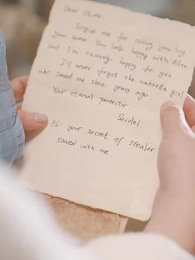 Dear Chloe
Forgive me for calling you by
your name. You look happy with Allen
and I'm really happy for you
I'll never forget the umbrella girl
who saved me three years ago
Your eternal protector
Seidel
PS: your secret of stealer
saved with me